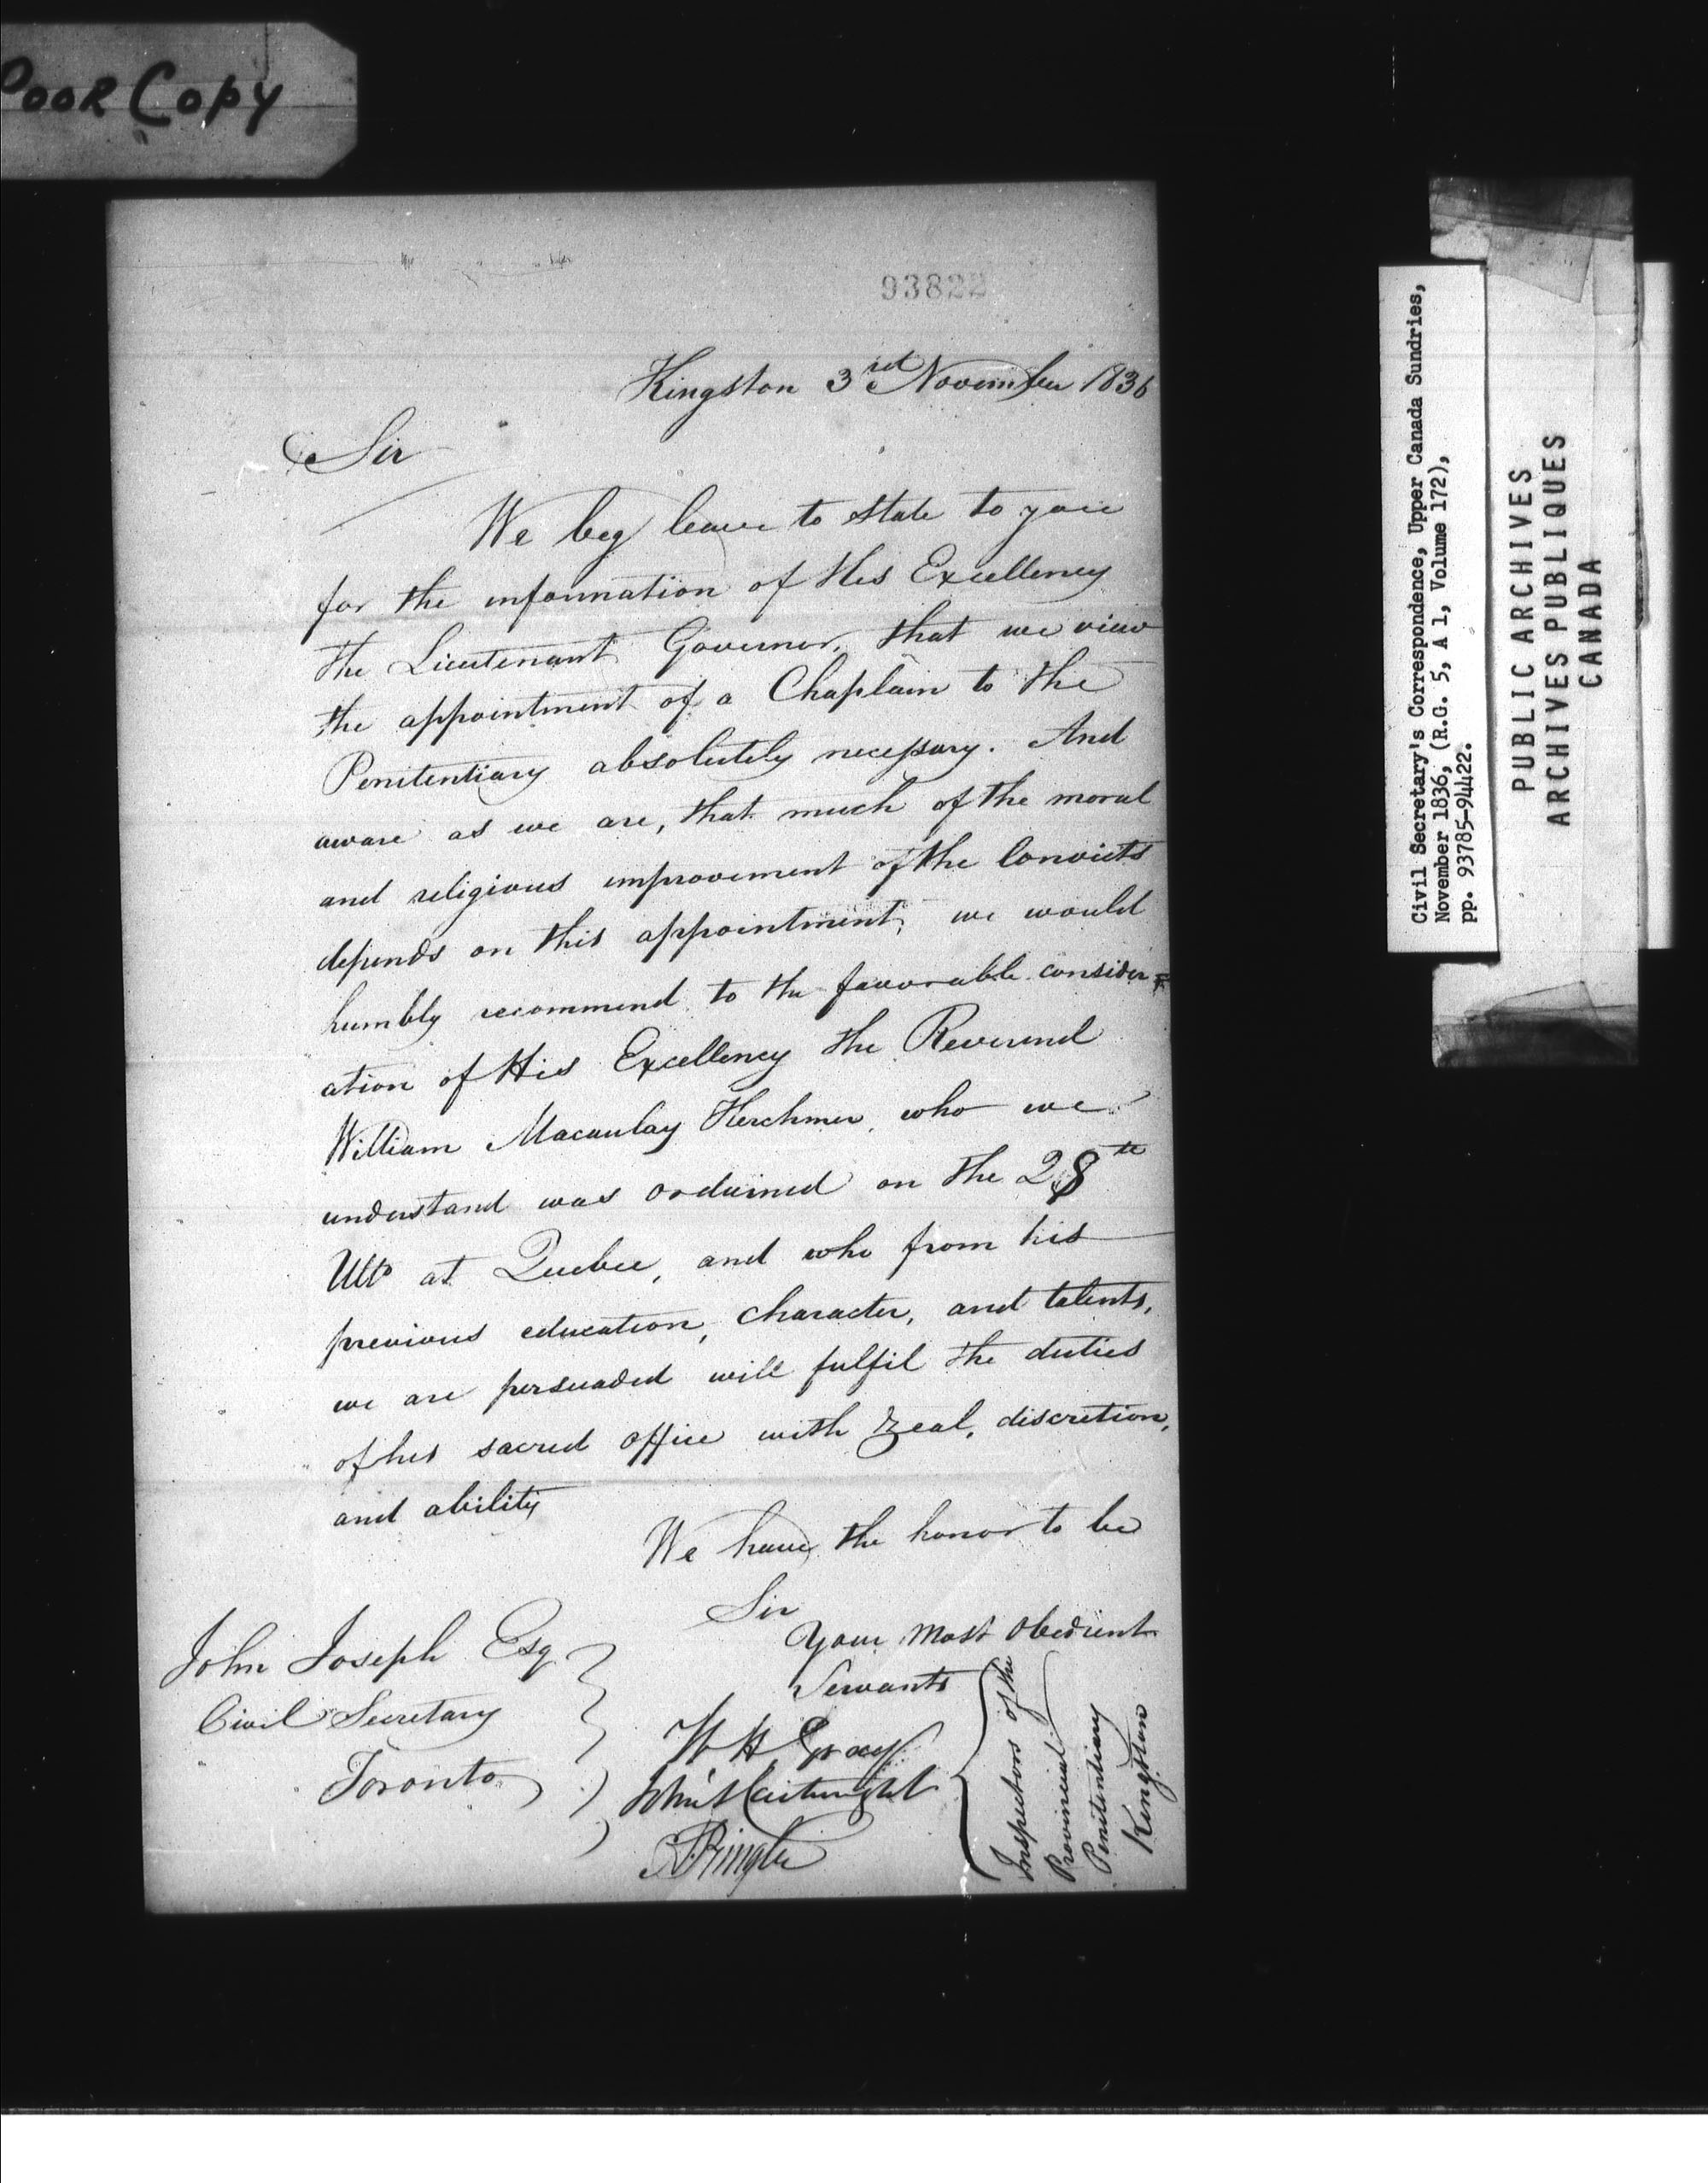 Poor Copy
93822
Kingston 3rd November 1836
Sir
We beg leave to state to you
for the information of His Excellency
the Lieutenant Governor, that we view
the appointment of a Chaplain to the
Penitentiary absolutely necessary. And
aware as we are, that much of the moral
and religious improvement of the Convicts
depends on this appointment, we would
humbly recommend to the favorable consider=
ation of His Excellency the Reverend
William Macaulay Herchmer, who we
understand was ordained on the 28th
Ulto at Quebec, and who from his
previous education, character, and talents,
we are persuaded will fulfil the duties
of his sacred office with Zeal, discretion,
and ability
We have the honor to be
Sir
Your Most Obedient
Servants
W H Gray
John S Cartwright
A Pringle
Inspectors of the
Provincial
Penitentiary
Kingston
John Joseph Esq
Civil Secretary
Toronto
Civil Secretary's Correspondence, Upper Canada Sundries,
November 1836, (R.G. 5, A 1, Volume 172),
pp. 93785-94422.
PUBLIC ARCHIVES
ARCHIVES PUBLIQUES
CANADA